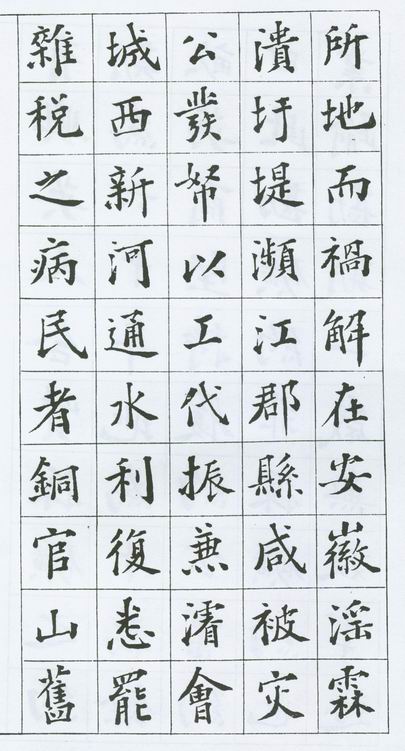 所地而禍解在安徽淫霖
潰圩堤瀕江郡縣咸被灾
公發帑以工代振兼濬會
城西新河通水利復悉罷
雜税之病民者銅官山舊